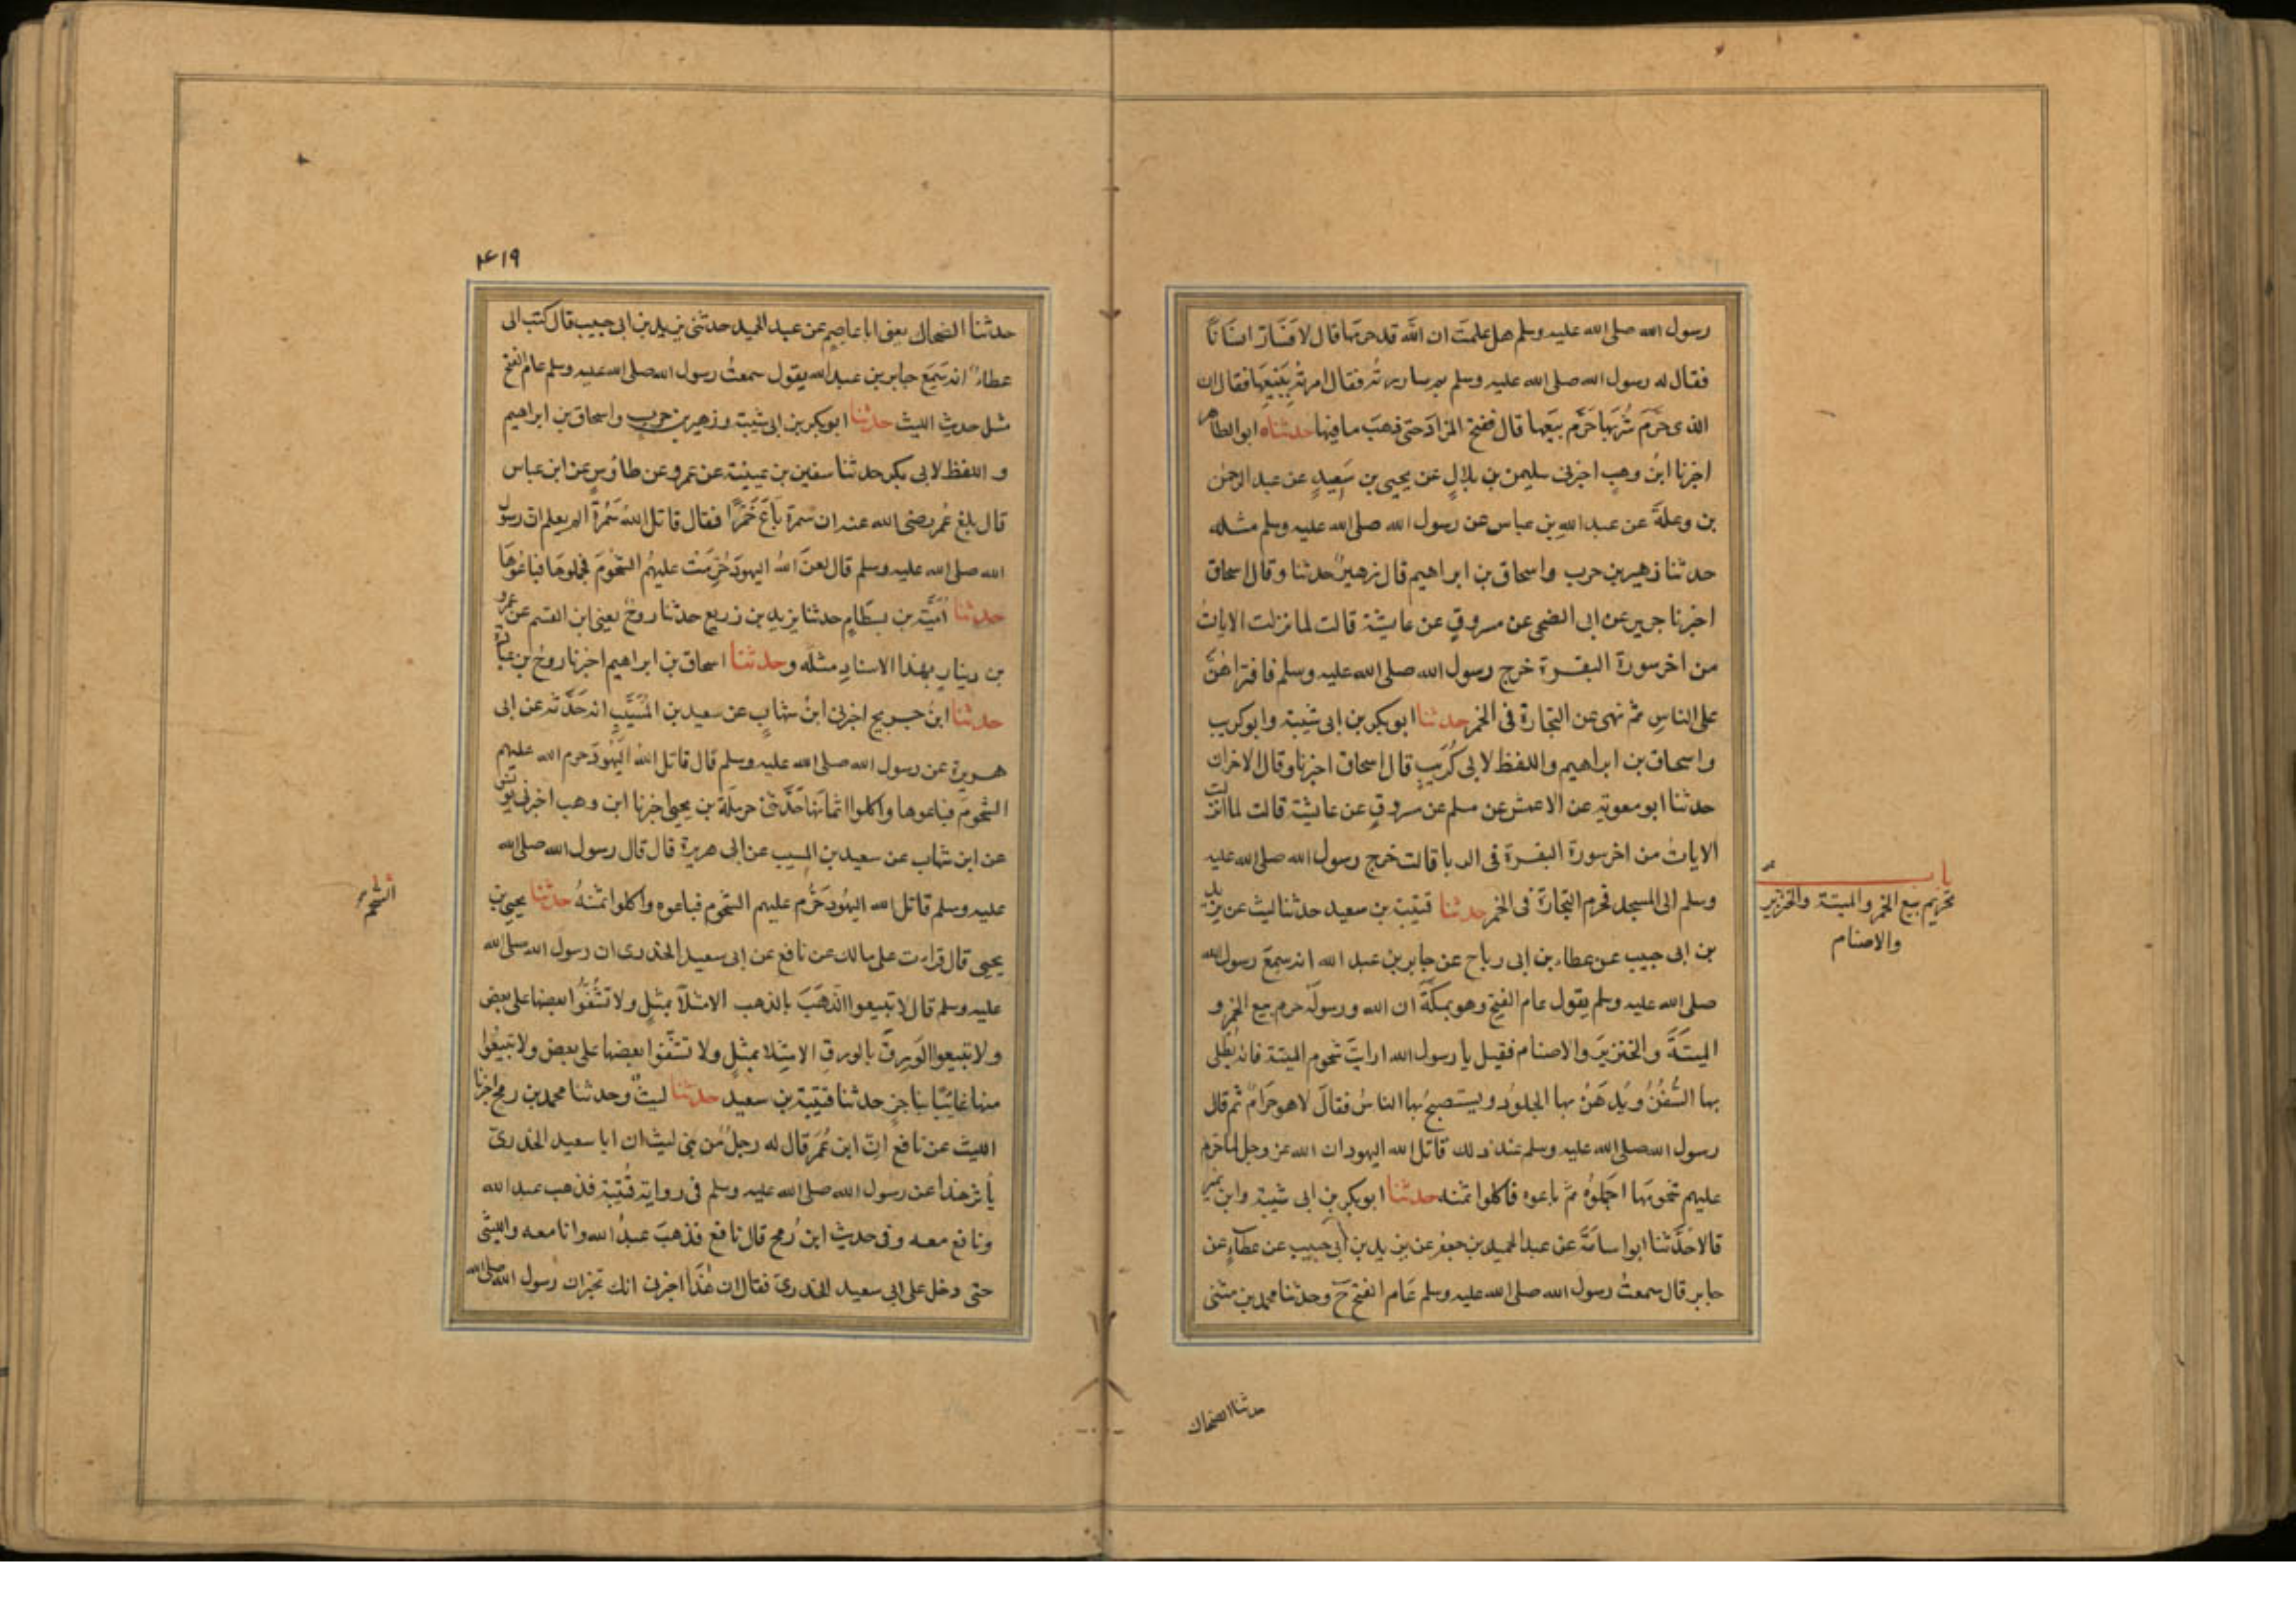 رسول الله صلى الله عليه وسلم هل علمت ان الله قد حرمها قال لا فَسَارَّ انسانًا
فقال له رسول الله صلى الله عليه وسلم بم ساررته فقال امرتُه بِبَيْعِهَا فقال ان
الذى حَرَّمَ شُرْبَهَا حَرَّمَ بَيْعَهَا قال ففتح المزادَ حتى ذهبَ ما فيها حدثناه ابو الطاهر
اخبرنا ابنُ وهبٍ اخبرنى سليمن بن بلالٍ عن يحيى بن سَعِيدٍ عن عبد الرحمن
بن وعلةَ عن عبد اللهِ بن عباس عن رسول الله صلى الله عليه وسلم مثله
حدثنا زهير بن حرب واسحاق بن ابراهيم قال زهيرٌ حدثنا وقال اسحاق
اخبرنا جرير عن ابى الضحى عن مسروقٍ عن عايشة قالت لما نزلت الاياتُ
من اخر سورة البقرة خرج رسول الله صلى الله عليه وسلم فاقتراهُنَّ
على الناسِ ثم نهى عن التجارة فى الخمر حدثنا ابوبكر بن ابى شيبة وابوكريب
واسحاق بن ابراهيم واللفظ لابى كُرَيبٍ قال اسحاق اخبرنا وقال الاخران
حدثنا ابو معوية عن الاعمش عن مسلم عن مسروقٍ عن عايشة قالت لما انزلت
الاياتُ من اخر سورة البقرة فى الربا قالت خرج رسول الله صلى الله عليه
وسلم الى المسجد فحرم التجارَةَ فى الخمر حدثنا قتيبة بن سعيد حدثنا ليث عن يزيد
بن ابى حبيب عن عطاء بن ابى رباح عن جابر بن عبد الله انه سَمِعَ رسول الله
صلى الله عليه وسلم يقول عام الفتح وهو بمكّةَ ان الله ورسولَه حرم بيع الخمر و
الميتَةَ والخنزيرَ والاصنام فقيل يا رسول الله ارايتَ شحوم الميتة فانه يُطْلى
بها السُّفُنُ ويُدْهَنُ بها الجلودُ ويستصبحُ بها الناسُ فقالَ لا هو حَرَامٌ ثم قال
رسول الله صلى الله عليه وسلم عند ذلك قاتل الله اليهود ان الله عز وجل لما حرم
عليهم شحومَها اجملُوُه ثم باعوه فاكلوا ثمنه حدثنا ابوبكر بن ابى شيبة وابن نمير
قالا حَدَّثنا ابوا سامَةَ عن عبد الحميد بن جعفر عن يزيد بن ابى حبيب عن عطاءٍ عن
جابر قال سمعتُ رسول الله صلى الله عليه وسلم عَام الفتح ح وحدثنا محمد بن مثنى
باب
تحريم بيع الخمر والميتة والخنزير
والاصنام
حدثنا الضحاك
۴۱۹
حدثنا الضحاك يعنى ابا عاصِمٍ عن عبد الحميد حدثنى يزيد بن ابى حبيب قال كتب الى
عطاءٌ انه سَمِعَ جابر بن عبد الله يقول سمعتُ رسول الله صلى الله عليه وسلم عام الفتح
مثل حديث الليث حدثنا ابوبكر بن ابى شيبة وزهير بن حرب واسحاق بن ابراهيم
و اللفظ لابى بكر حدثنا سفين بن عيينة عن عمرو عن طاؤسٍ عن ابن عباس
قال بلغ عُمر رضى الله عنه ان سمرة بَاعَ خَمْرًا فقال قاتل اللهُ سَمُرَةَ الم يعلم ان رسول
الله صلى الله عليه وسلم قال لعنَ اللهُ اليهودَ حُرِّمَتْ عليهِمُ الشحُومَ فجملوهَا فبَاعُوهَا
حدثنا اُمَيَّة بن بسطامٍ حدثنا يزيد بن زريع حدثنا روحٌ يعنى ابن القسم عن عمرو
بن دينارٍ بهذا الاسنادِ مثلَه وحدثنا اسحاق بن ابراهيم اخبرنا روحُ بن عبادة
حدثنا ابنُ جريج اخبرنى ابنُ شهابٍ عن سعيد بن المُسَيَّبِ انه حَدَّثه عن ابى
هريرة عن رسول الله صلى الله عليه وسلم قال قاتل اللهُ اليَهُودَ حرم الله عليهم
الشحومَ فباعوها واكلوا اثمانَها حَدَّثَنى حرملَة بن يحيى اخبرنا ابن وهب اخبرنى يونس
عن ابن شهاب عن سعيد بن المسيب عن ابى هريرة قال قال رسول الله صلى الله
عليه وسلم قاتل الله اليهُود حُرِّم عليهم الشحوم فباعوه واكلوا ثمنهُ حدثنا يحيى بن
يحيى قال قرات على مالك عن نافع عن ابى سعيد الخدرى ان رسول الله صلى الله
عليه وسلم قال لا تبيعوا الذهَبَ بالذهب الا مثلًا بمثلٍ ولا تُشِفُّوا بعضها على بعض
ولا تبيعوا الوَرِقَ بالورقِ الا مِثلا بمثلٍ ولا تشفّوا بعضها على بعض ولا تَبِيعُوا
منها غائبًا بناجزٍ حدثنا قتيبة بن سعيد حدثنا ليثٌ وحدثنا محمد بن رمح اخبرنا
الليث عن نافع انّ ابن عُمَرَ قال له رجلٌ من بنى ليث ان ابا سعيد الخدرىّ
يأثر هذا عن رسول الله صلى الله عليه وسلم فى رواية قُتَيْبة فذهب عبد الله
ونافع معه وفى حديث ابن رُمح قال نافع فذهبَ عبدُ الله وانا معه والليثى
حتى دخل على ابى سعيد الخدرىّ فقال ان هٰذَا اخبرنى انك تخبرُ ان رسول الله صلى الله
الشحم